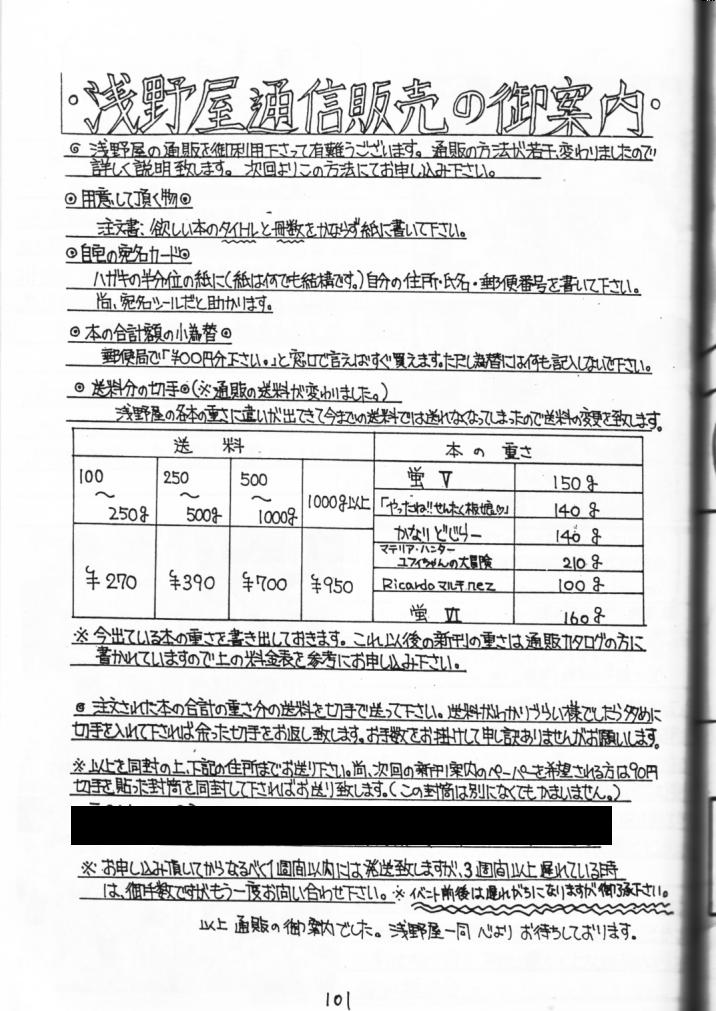 ・浅野屋通信販売の御案内・
◎ 浅野屋の通販を御利用下さって有難うございます。通販の方法が若干、変わりましたので
詳しく説明致します。次回よりこの方法にてお申し込み下さい。
◎用意して頂く物◎
注文書、欲しい本のタイトルと冊数をかならず紙に書いて下さい。
◎自宅の宛名カード◎
ハガキの半分位の紙に(紙は何でも結構です。)自分の住所・氏名・郵便番号を書いて下さい。
尚、宛名シールだと助かります。
◎ 本の合計額の小為替◎
郵便局で「¥〇〇円分下さい。」と窓口で言えばすぐ買えます。ただし為替には何も記入しないで下さい。
◎ 送料分の切手◎(※通販の送料が変わりました。)
浅野屋の各本の重さに違いが出てきて今までの送料では送れなくなってしまったので送料の変更を致します。
送料 本の重さ
100〜250g 250〜500g 500〜1000g 1000g以上
¥270 ¥390 ¥700 ¥950
蛍 Ⅴ 150g
「やったね!!せんたく板娘♡」 140g
かなりどじらー 140g
マテリア・ハンター
ユフィちゃんの大冒険 210g
Ricardoマルチnez 100g
蛍 Ⅵ 160g
※ 今出ている本の重さを書き出しておきます。これ以後の新刊の重さは通販カタログの方に
書かれていますので上の料金表を参考にお申し込み下さい。
◎ 注文された本の合計の重さ分の送料を切手で送って下さい。送料がわかりづらい様でしたら多めに
切手を入れて下されば余った切手をお返し致します。お手数をお掛けして申し訳ありませんがお願いします。
※以上を同封の上、下記の住所までお送り下さい。尚、次回の新刊案内のペーパーを希望される方は90円
切手を貼った封筒を同封して下さればお送り致します。(この封筒は別になくてもかまいません。)
※ お申し込み頂いてからなるべく1週間以内には発送致しますが、3週間以上遅れている時
は、御手数ですがもう一度お問い合わせ下さい。※ イベント前後は遅れがちになりますが御了承下さい。
以上 通販の御案内でした。浅野屋一同 心よりお待ちしております。
101